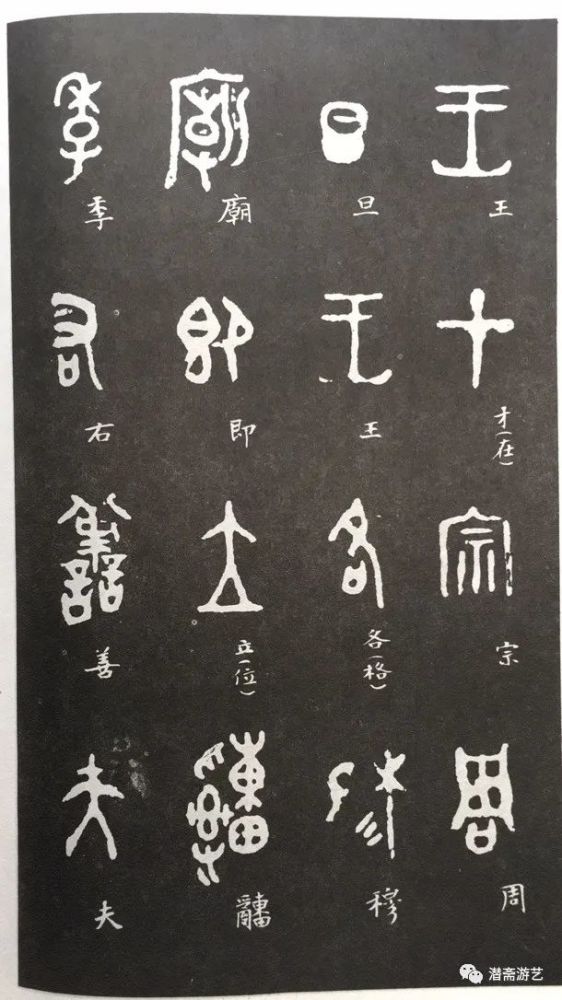 王 才(在) 宗 周
旦 王 各(格) 穆
廟 即 立(位)
季 右 善 夫
潜斋游艺